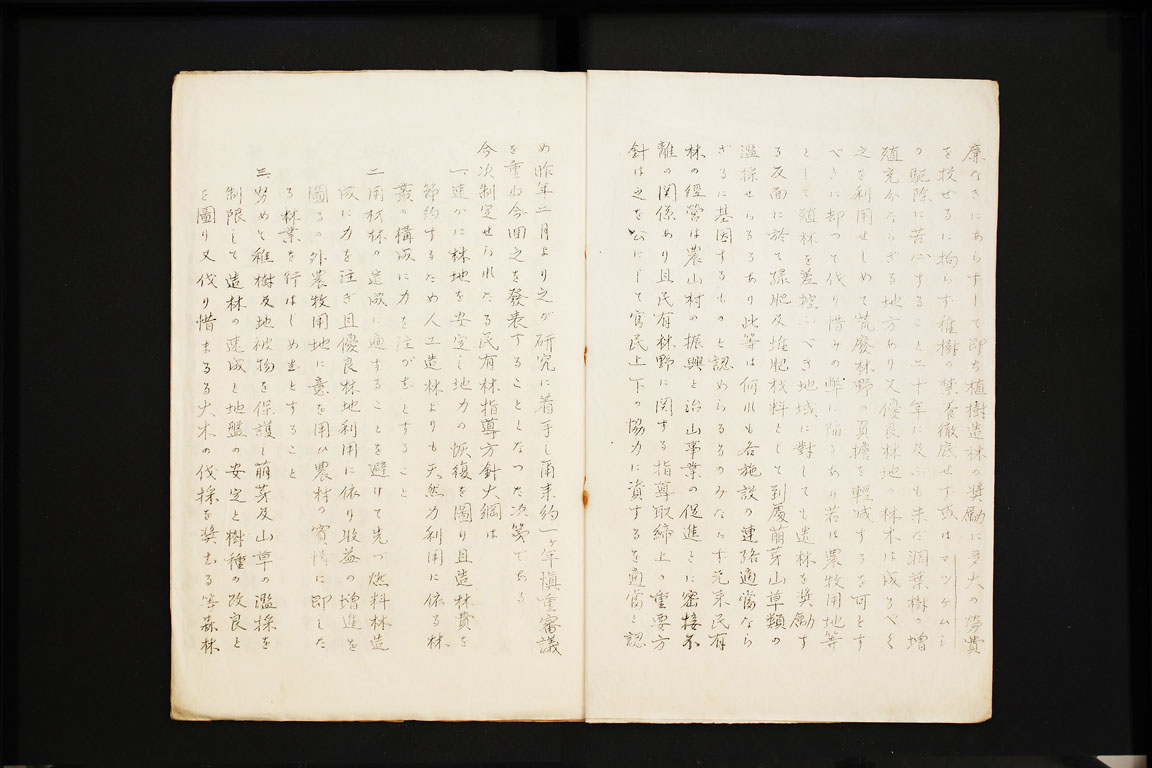 廉なきにあらずして即ち植樹造林の奨勵に多大の勞費
を投せるに拘らす稚樹の禁養徹底せす或はマツケムシ
の駆除に苦心すること二十年に及ふも未だ濶葉樹の増
殖充分ならざる地方あり又優良林地の林木は成るべく
之を利用せしめて荒廢林野の負擔を輕減するを可とす
べきに却つて伐り惜みの弊に陥るあり若は農牧用地等
として殖林を差控ふべき地域に對しても造林を奨勵す
る反面に於て緑肥及堆肥材料として到處萠芽山草類の
濫採せらるるあり此等は何れも各施設の連絡適當なら
ざるに基因するものと認めらるるのみならす元来民有
林の經營は農山村の振興と治山事業の促進とに密接不
離の関係あり且民有林野に関する指導取締上の重要方
針は之を公にして官民上下の協力に資するを適當と認
め昨年二月より之が研究に着手し爾来約一ケ年慎重審議
を重ね今囬之を發表することとなつた次第である
今次制定せられたる民有林指導方針大綱は
一、速かに林地を安定し地力の恢復を圖り且造林費を
節約するため人工造林よりも天然力利用に依る林
叢の構成に力を注がむとすること
二、用材林の造成に適することを避けて先づ燃料林造
成に力を注ぎ且優良林地利用に依り收益の増進を
圖るの外農牧用地に意を用ひ農村の實情に即した
る林業を行はしめむとすること
三、努めて稚樹及地被物を保護し萠芽及山草の濫採を
制限して造林の速成と地盤の安定と樹種の改良と
を圖り又伐り惜まるる大木の伐採を奨むる等森林